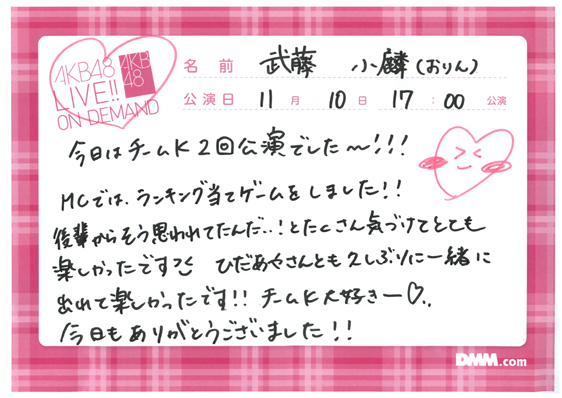 AKB48
LIVE!!
ON DEMAND
AKB
48
名前 武藤 小麟(おりん)
公演日 11月 10日 17:00 公演
今日はチームK2回公演でした〜!!!
MCでは、ランキング当てゲームをしました!!
後輩からそう思われてたんだ..!とたくさん気づけてとても
楽しかったです ひだあやさんとも久しぶりに一緒に
出れて楽しかったです!! チームK大好きー♡..
今日もありがとうございました!!
DMM.com